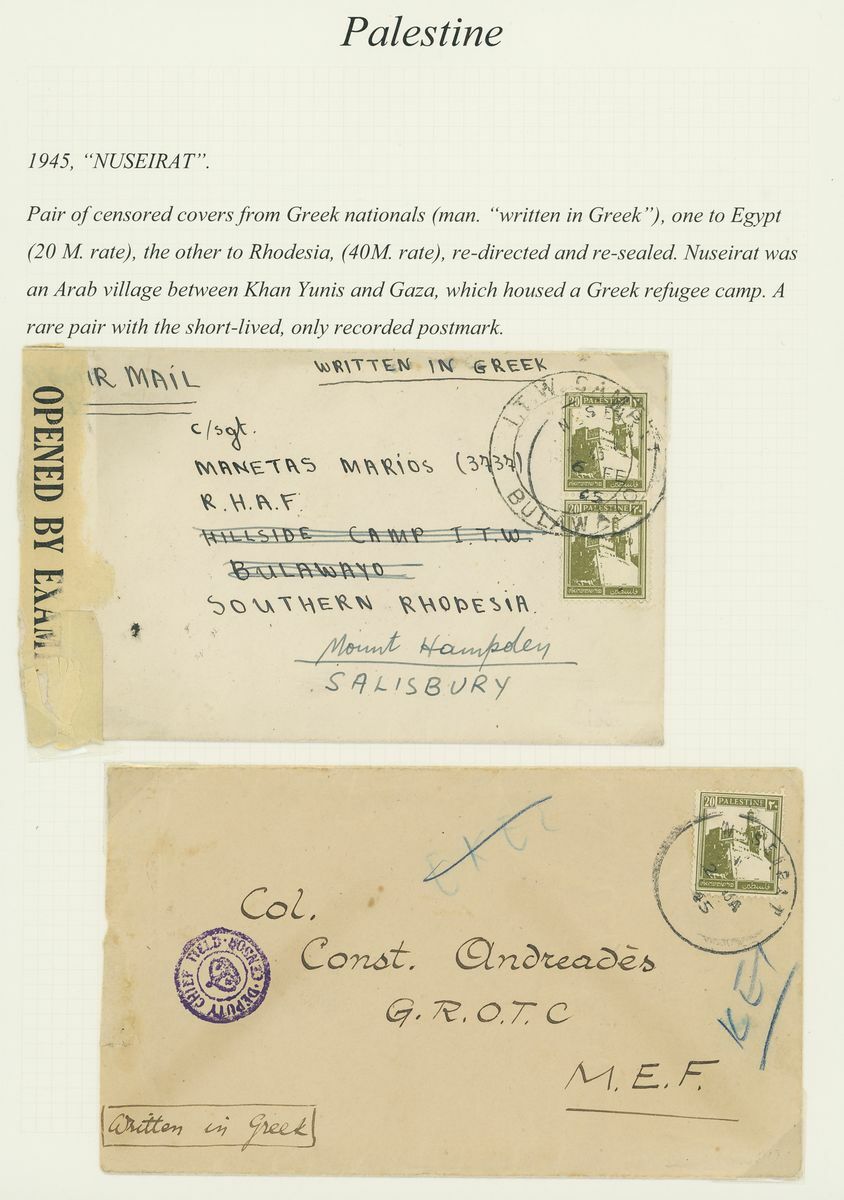 Palestine
1945, “NUSEIRAT”.
Pair of censored covers from Greek nationals (man. “written in Greek”), one to Egypt
(20 M. rate), the other to Rhodesia, (40M. rate), re-directed and re-sealed. Nuseirat was
an Arab village between Khan Yunis and Gaza, which housed a Greek refugee camp. A
rare pair with the short-lived, only recorded postmark.
OPENED BY EXAM
IR MAIL
WRITTEN IN GREEK
c/sgt.
MANETAS MARIOS (3737)
R.H.A.F.
HILLSIDE CAMP I.T.W.
BULAWAYO
SOUTHERN RHODESIA
Mount Hampden
SALISBURY
I.T.W. CAMP
BULAWAYO
20 PALESTINE ٢٠
20 PALESTINE ٢٠
فلسطين
20 PALESTINE ٢٠
فلسطين
NUSEIRAT
45
Col.
Const. Andreadès
G.R.O.T.C
M.E.F.
DEPUTY CHIEF FIELD CENSOR
Written in Greek